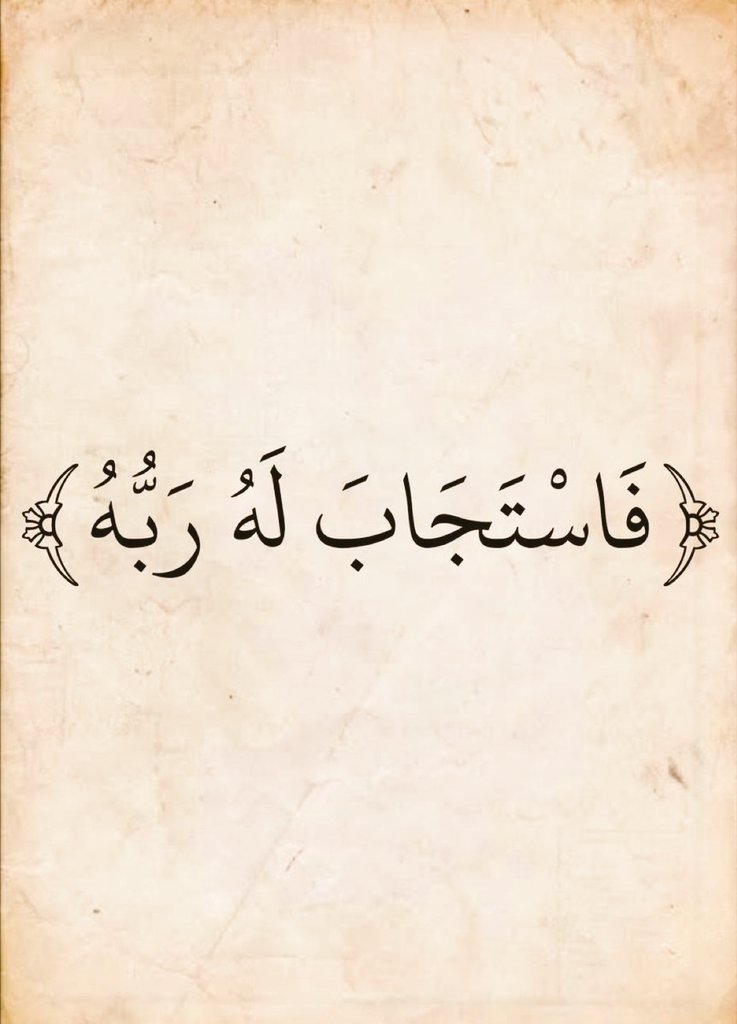 ﴿فَاسْتَجَابَ لَهُ رَبُّهُ﴾